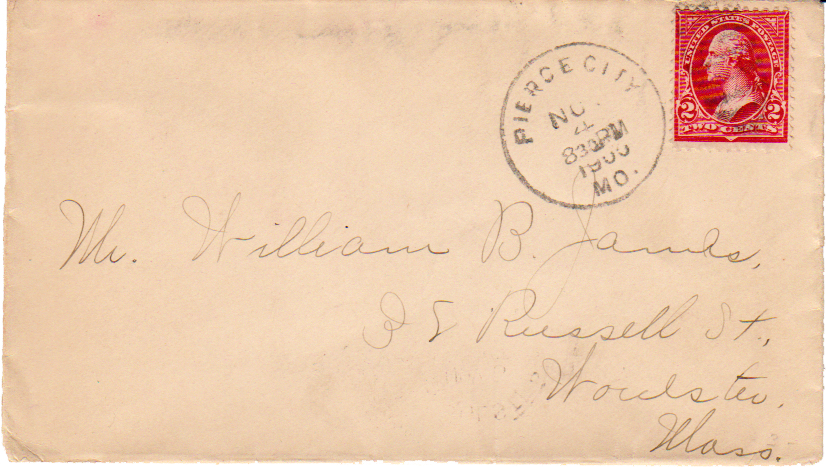 UNITED STATES POSTAGE
2 2
TWO CENTS
PIERCE CITY
NO
830PM
1900
MO.
Mr. William B. James,
Russell St.,
Worcester,
Mass.